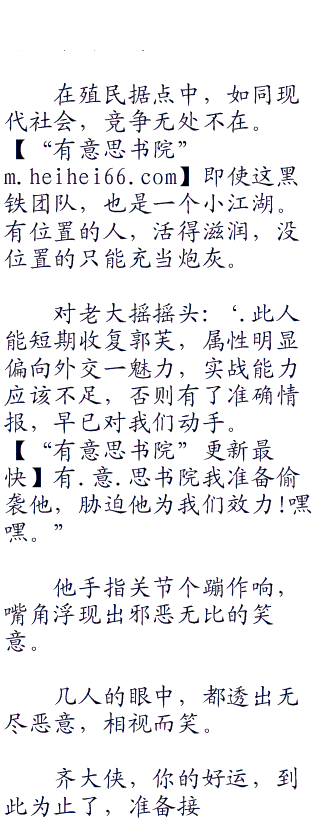 在殖民据点中，如同现
代社会，竞争无处不在。
【“有意思书院”
m.heihei66.com】即使这黑
铁团队，也是一个小江湖。
有位置的人，活得滋润，没
位置的只能充当炮灰。
对老大摇摇头：‘.此人
能短期收复郭芙，属性明显
偏向外交一魅力，实战能力
应该不足，否则有了准确情
报，早已对我们动手。
【“有意思书院”更新最
快】有.意.思书院我准备偷
袭他，胁迫他为我们效力!嘿
嘿。”
他手指关节个蹦作响，
嘴角浮现出邪恶无比的笑
意。
几人的眼中，都透出无
尽恶意，相视而笑。
齐大侠，你的好运，到
此为止了，准备接